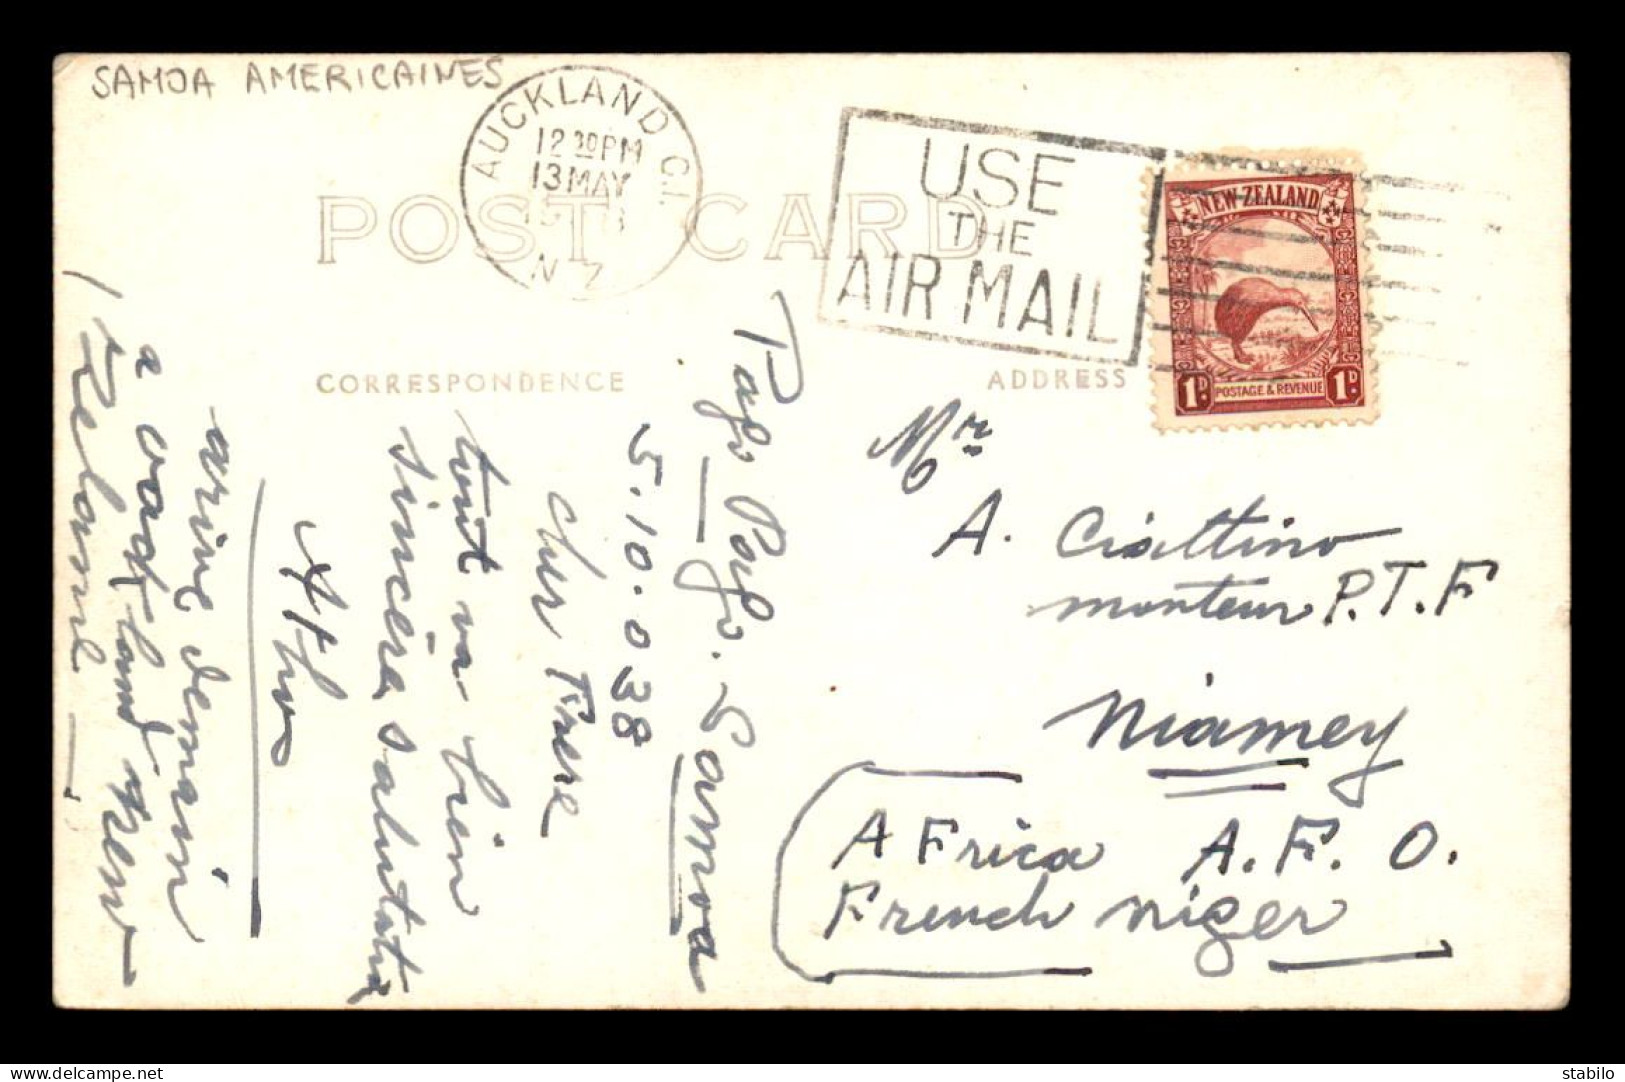 SAMOA AMERICAINES
AUCKLAND C.1.
12 30 PM
13 MAY
N Z
USE
THE
AIR MAIL
NEW ZEALAND
1D
POSTAGE & REVENUE
1D
POST CARD
CORRESPONDENCE
ADDRESS
Pago Pago. Samoa
5.10.038
cher Frere
tout va bien
sincère salutation
arrive demain
a
Zelande
Mr
A.
monteur P.T.F
Niamey
AFrica A.F.O.
French Niger
www.delcampe.net
stabilo